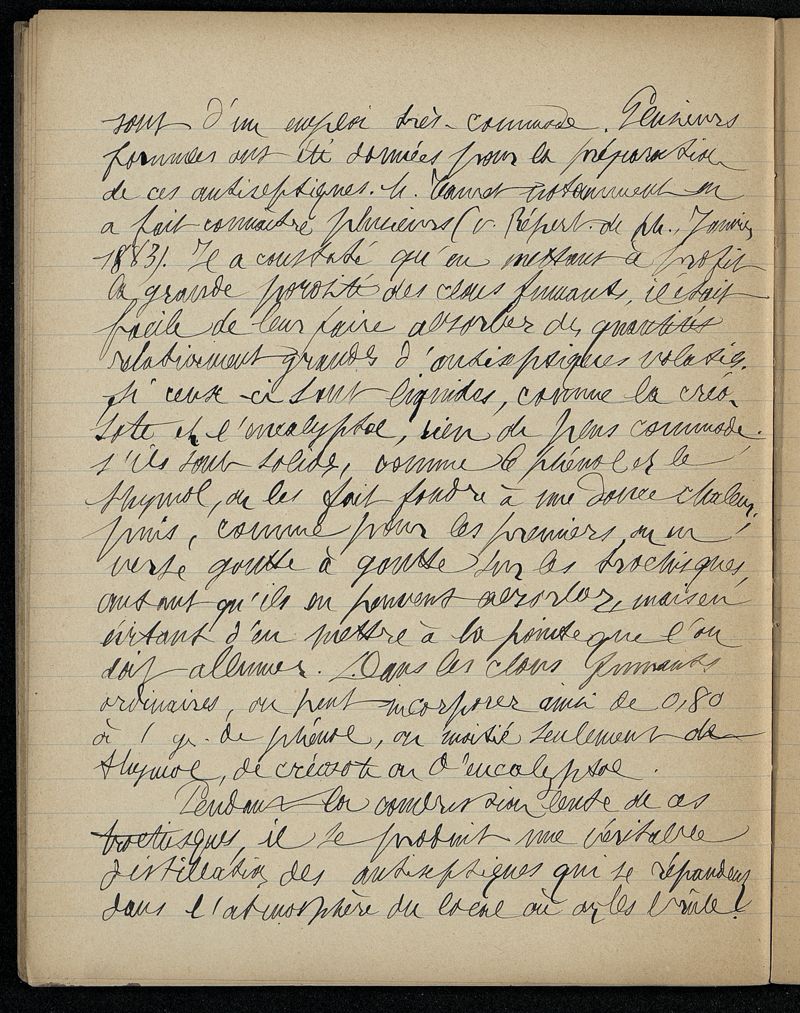 sont d'un emploi très-commode. Plusieurs
formules ont été données pour la préparation
de ces antiseptiques. M. Tanret notamment en
a fait connaître plusieurs (v. Répert. de ph., Janvier
1883). Il a constaté qu'en mettant à profit
la grande porosité des clous fumants, il était
facile de leur faire absorber des quantités
relativement grandes d'antiseptiques volatils.
Si ceux-ci sont liquides, comme la créo-
sote et l'eucalyptol, rien de plus commode;
s'ils sont solides, comme le phénol et le
thymol, on les fait fondre à une douce chaleur,
puis, comme pour les premiers, on en
verse goutte à goutte sur les trochisques,
autant qu'ils en peuvent absorber, mais en
évitant d'en mettre à la pointe que l'on
doit allumer. Dans les clous fumants
ordinaires, on peut incorporer ainsi de 0,80
à 1 gr. de phénol, ou moitié seulement de
thymol, de créosote ou d'eucalyptol.
Pendant la combustion lente de ces
trochisques, il se produit une véritable
distillation des antiseptiques qui se répandent
dans l'atmosphère du local où on les brûle.